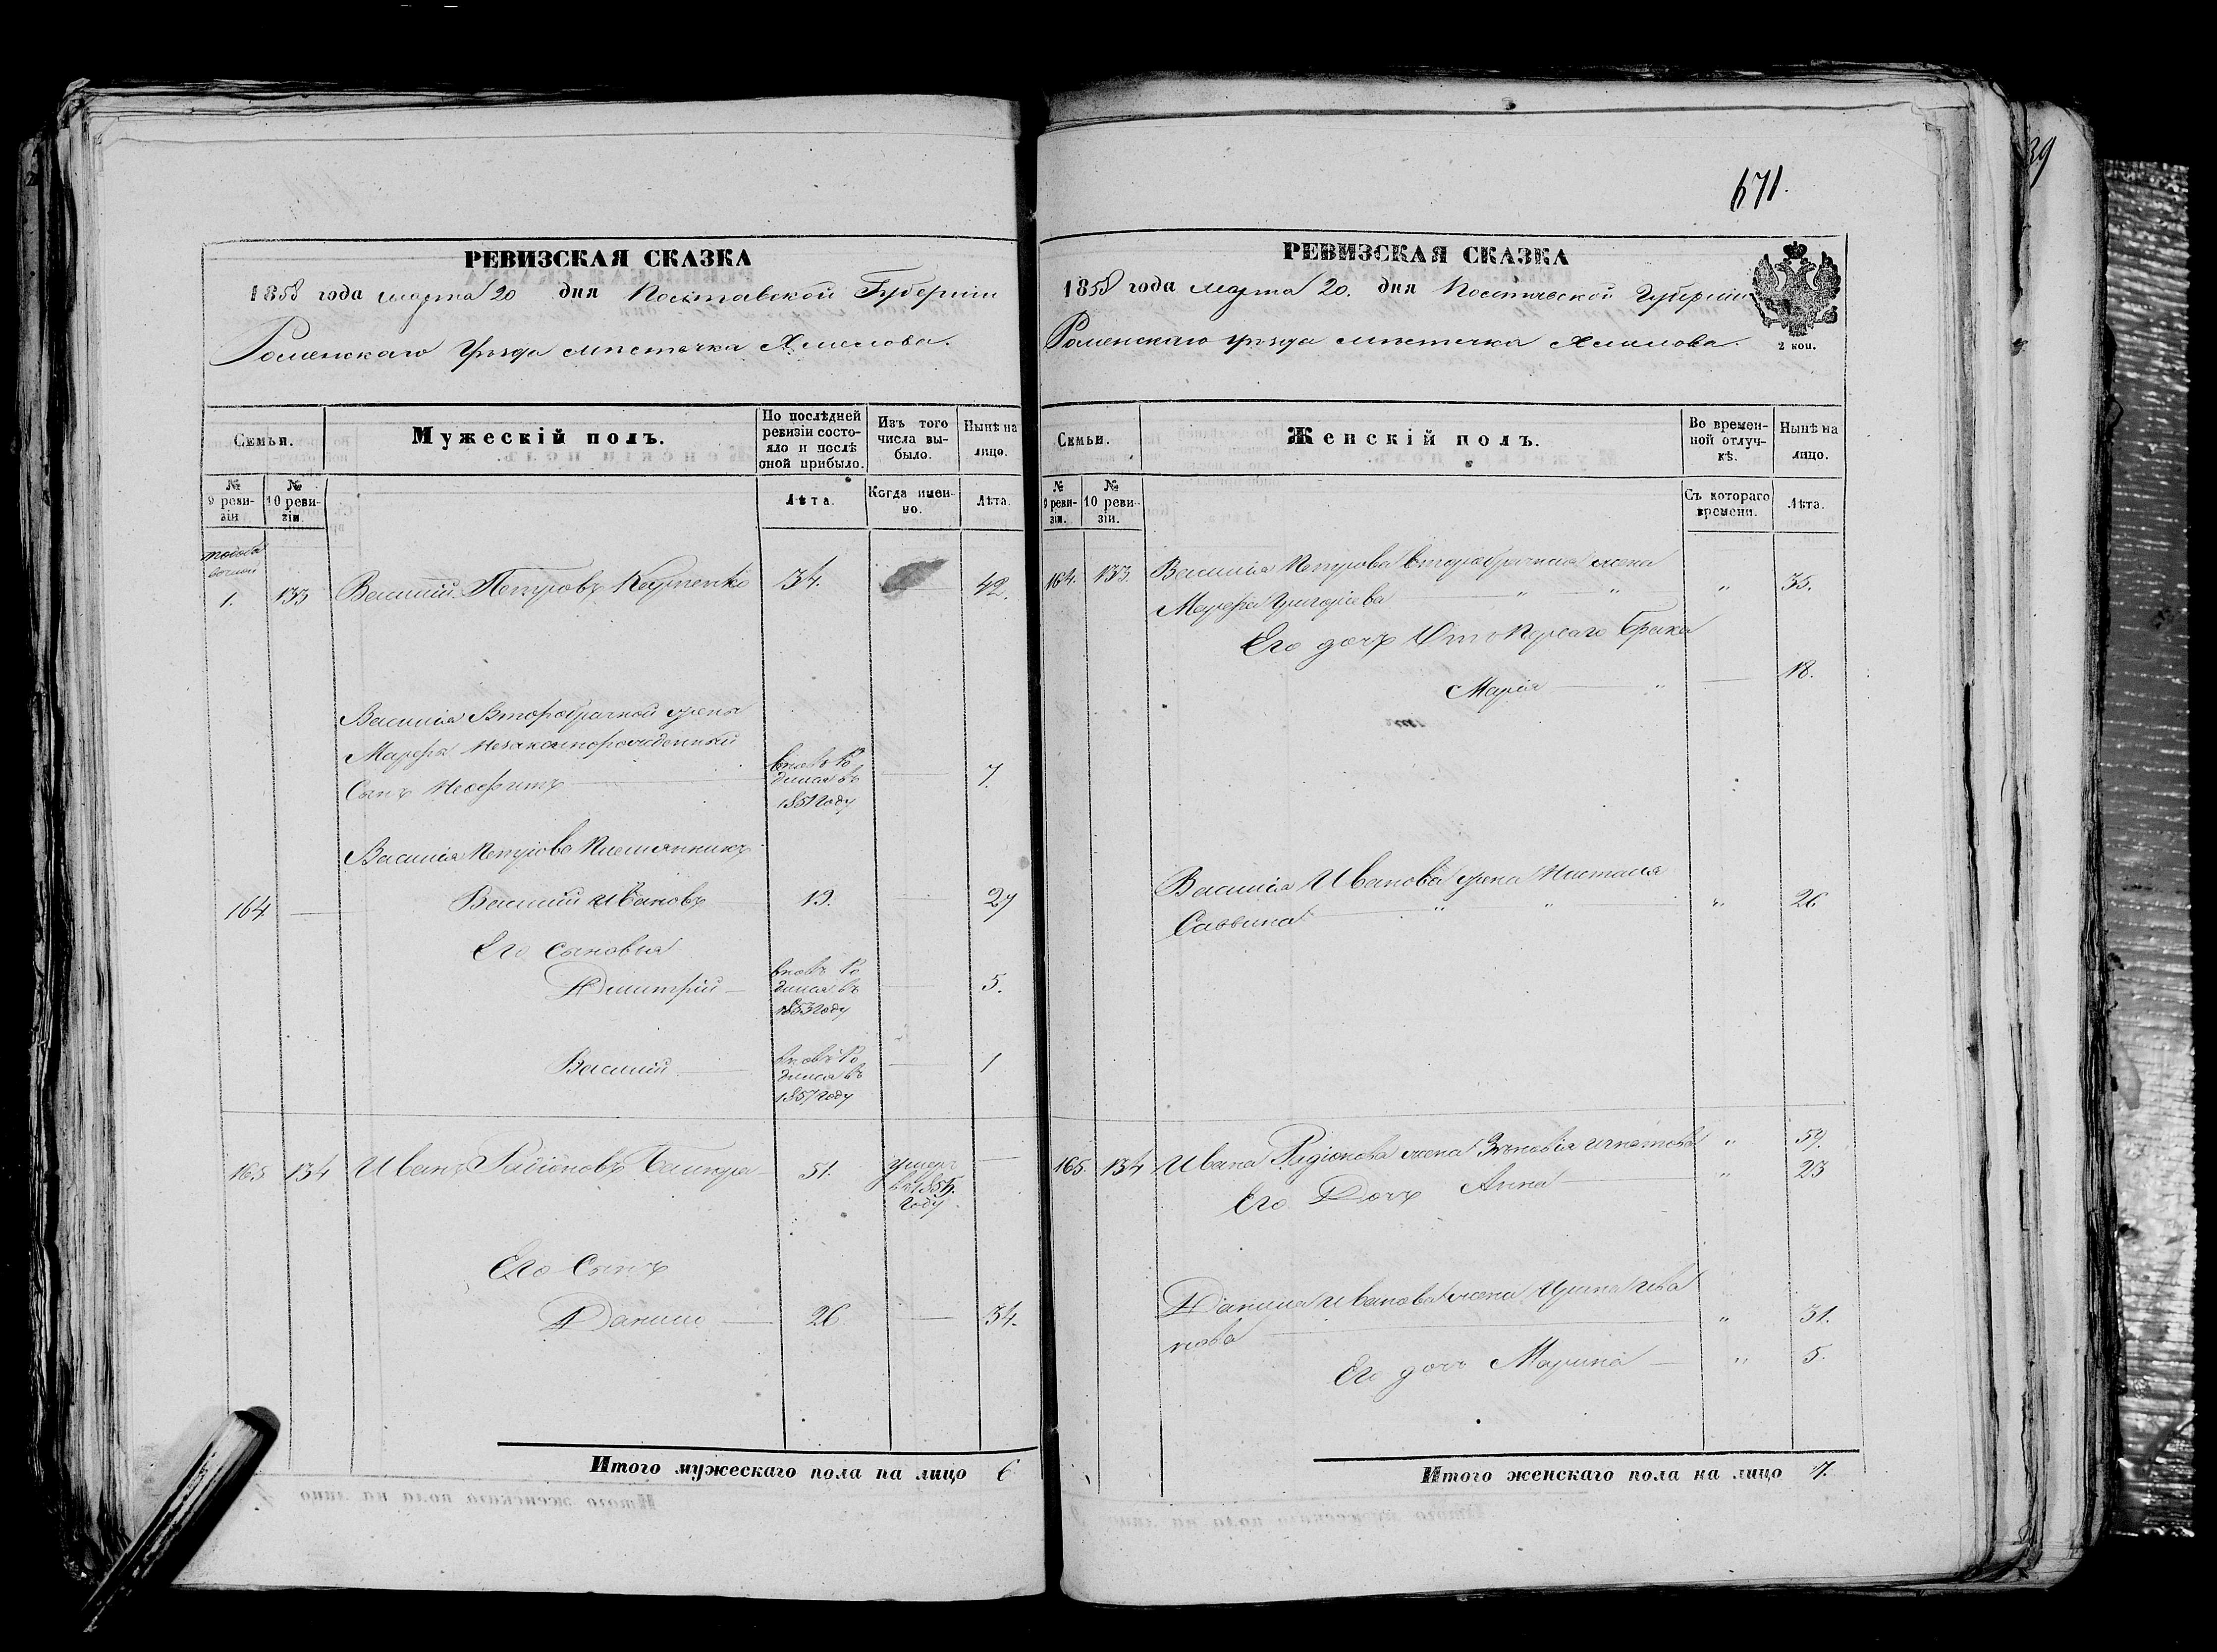 671.
39
РЕВИЗСКАЯ СКАЗКА
1858 года марта 20 дня Полтавской Губернии
Роменскаго Уѣзда мѣстечка Хмелова.
Семьи.
Мужескій полъ.
По послѣдней ревизіи состояло и послѣ оной прибыло.
Изъ того числа выбыло.
Нынѣ на лицо.
№ 9 ревизіи
№ 10 ревизіи.
Лѣта.
Когда именно.
Лѣта.
1. 133 Василий Петровъ 34. 42.
Василія Второбрачной жены
Марфы незаконнорожденный
Сынъ Неофитъ вновь родился въ 1851 году 7.
Василія Петрова Племянникъ
164 Василий Ивановъ 19. 27
Его сыновья
Дмитрій вновь родился въ 1853 году 5.
Василий вновь родился въ 1857 году 1
165 134 Иванъ Радіоновъ 51. умеръ въ 1855. году
Его Сынъ
Данило 26. 34.
Итого мужескаго пола на лицо 6
РЕВИЗСКАЯ СКАЗКА
1858 года марта 20. дня Полтавской Губерніи
Роменскаго уѣзда мѣстечка Хмелова.
2 коп.
Семьи.
Женскій полъ.
Во временной отлучкѣ.
Нынѣ на лицо.
№ 9 ревизіи.
№ 10 ревизіи.
Съ котораго времени.
Лѣта.
164. 133. Василія Петрова второбрачная жена
Марфа Григоріева " " " 35.
Его дочь Отъ Перваго брака
Марія " 18.
Василія Иванова жена Наталія
Саввина " " " 26
165. 134 Ивана Радіонова жена Зѣновія Игнатова " 59.
Его Дочь Анна " 23
Данила Иванова жена Ирина Ива
нова " 31.
Его дочь Марина " 5.
Итого женскаго пола на лицо 7.